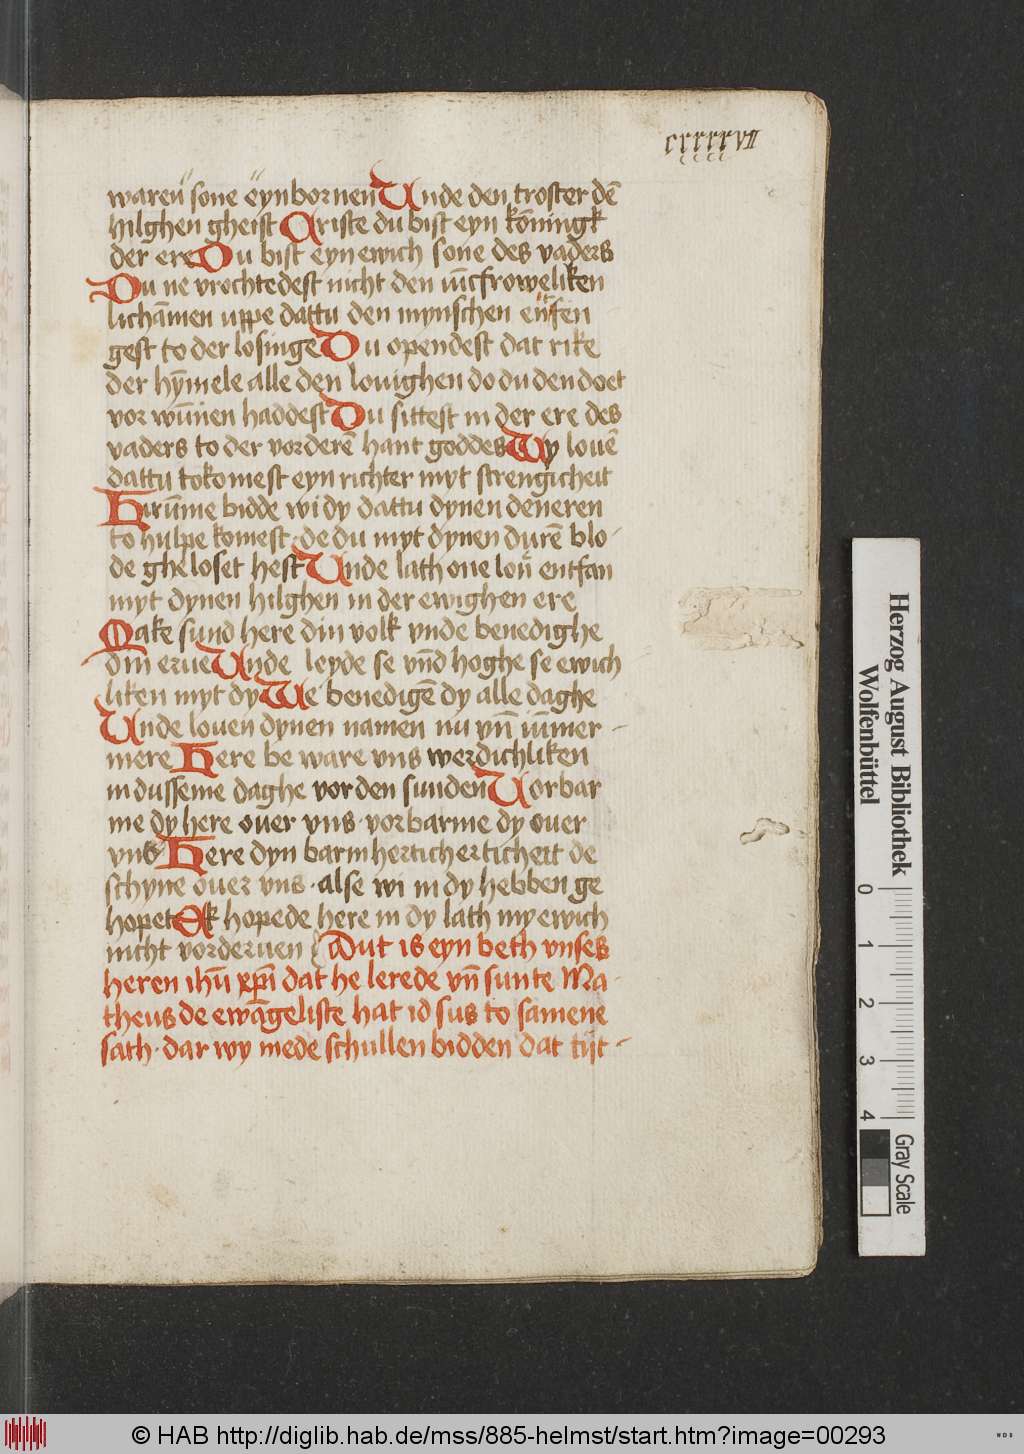 cxxxxvii
waren sone eynbornen Unde den troster dē
hilghen gheist Criste du bist eyn kōningk
der ere Du bist eyn ewich sone des vaders
Du ne vrochtedest nicht den iūcfroweliken
lichāmen uppe dattu den mynschen entfen
gest to der losinge Du opendest dat rike
der hȳmele alle den louighen do du den doet
vor wūnen haddest Du sittest in der ere des
vaders to der vorderē hant goddes Wy louē
dattu tokomest eyn richter myt strengicheit
Hirūme bidde wi dy dattu dynen deneren
to hulpe komest · de du myt dynen durē blo-
de gheloset hest Unde lath one lon entfan
myt dynen hilghen in der ewighen ere
Make sund here din volk vnde benedighe
din erue Unde leyde se vnd hoghe se ewich
liken myt dy We benedigē dy alle daghe
Unde louen dynen namen nu vn̄ iūmer -
mere Here be ware vns werdichliken
in dusseme daghe vor den sunden Vorbar
me dy here ouer vns · vorbarme dy ouer
vns Here dyn barmherticherticheit de
schyne ouer vns · alse wi in dy hebben ge
hopet Ek hopede here in dy lath my ewich
nicht vorderuen Dut is eyn beth vnses
heren ihū xp̄i dat he lerede vn̄ sunte Ma-
theus de ewāgeliste hat id sus to samene
sath · dar wy mede schullen bidden dat tijt -
Herzog August Bibliothek
Wolfenbüttel
0 1 2 3 4
Gray Scale
© HAB http://diglib.hab.de/mss/885-helmst/start.htm?image=00293
WDB